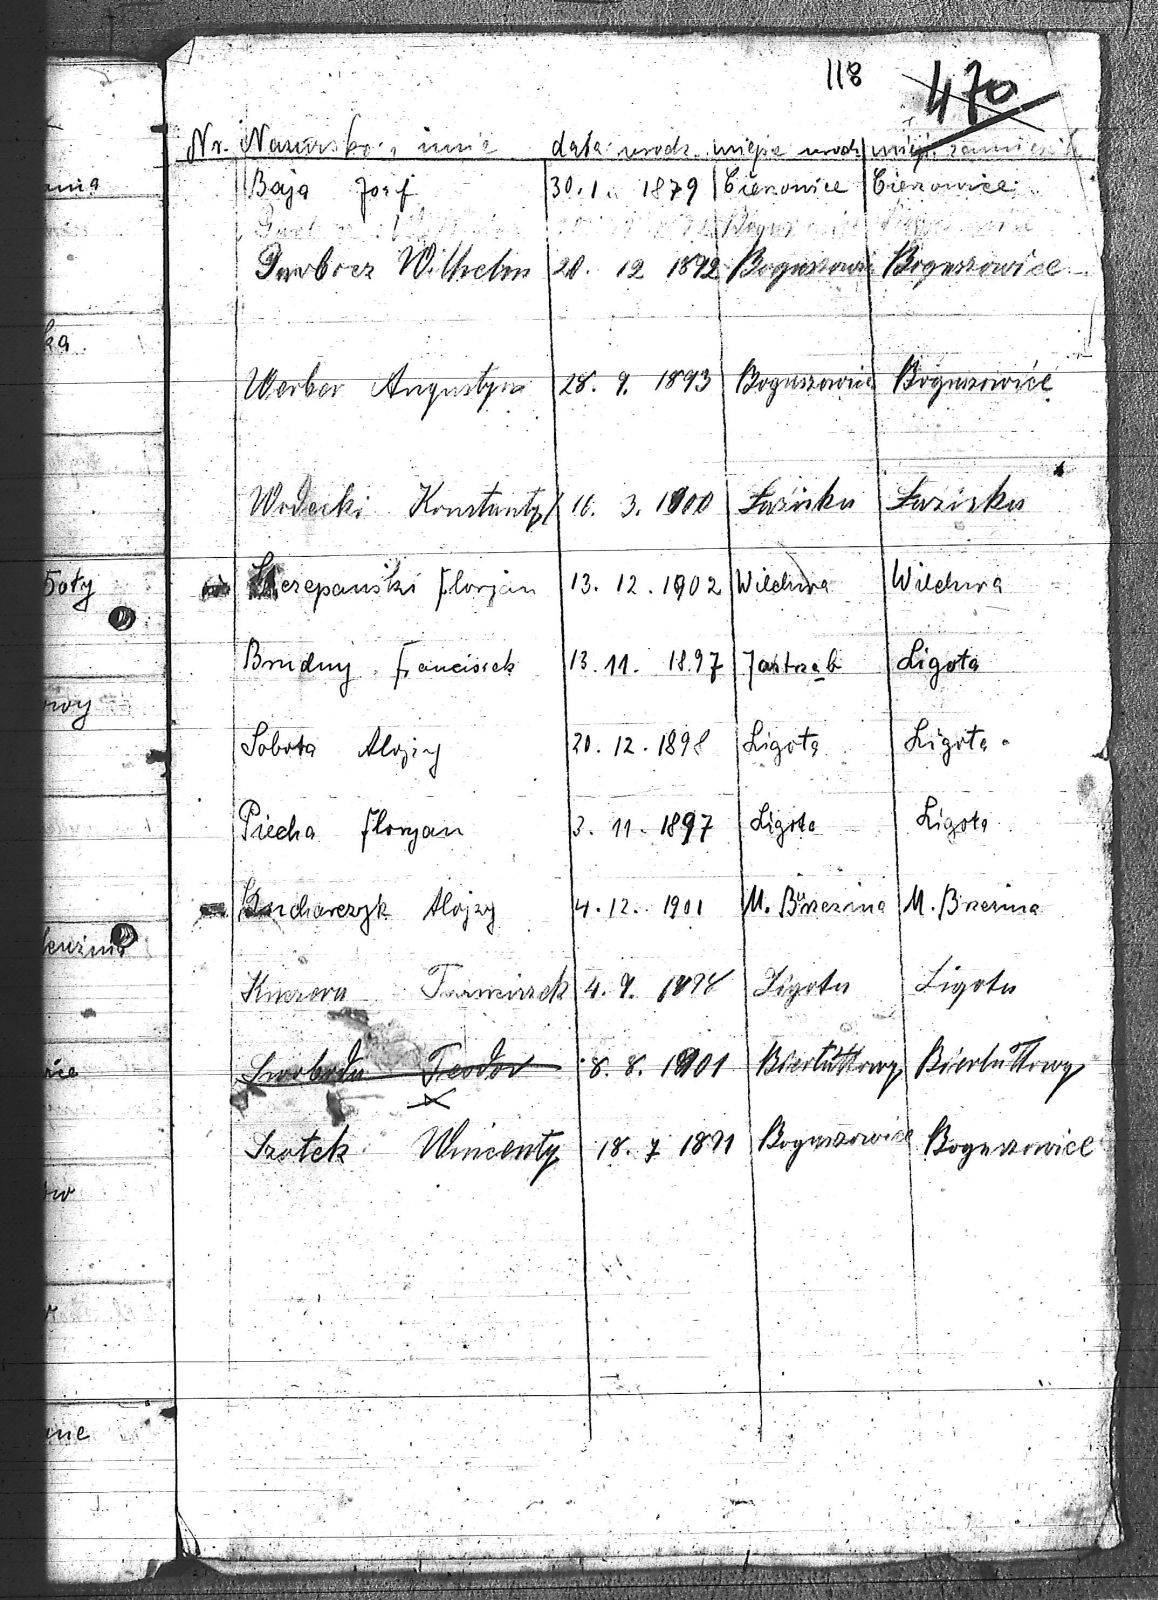 118 470
Nr. Nazwisko i imie data urodz. miejsc urodz miejs. zamieszk
Baja Josef 30. 1. 1879 Cierowice Cierowice
Wilhelm 20. 12 1892 Boguszowi Boguszowice
Werber Augustyn 28. 9. 1893 Boguszowice Boguszowice
Wodecki Konstanty 16. 3. 1900 Łaziska Łaziska
Szczepański Florjan 13. 12. 1902 Wilchwa Wilchwa
Brudny Franciszek 13. 11. 1897 Jastrzęb Ligota
Sobota Alojzy 20. 12. 1898 Ligota Ligota
Piecha Floryan 3. 11. 1897 Ligota Ligota
Kucharczyk Alojzy 4. 12. 1901 M. Brzezina M. Brzezina
Kuczera Franciszek 4. 9. 1898 Ligota Ligota
Swoboda Teodor 8. 8. 1901 Biertułtowy Biertułtowy
Szotek Wincenty 18. 7 1891 Boguszowice Boguszowice